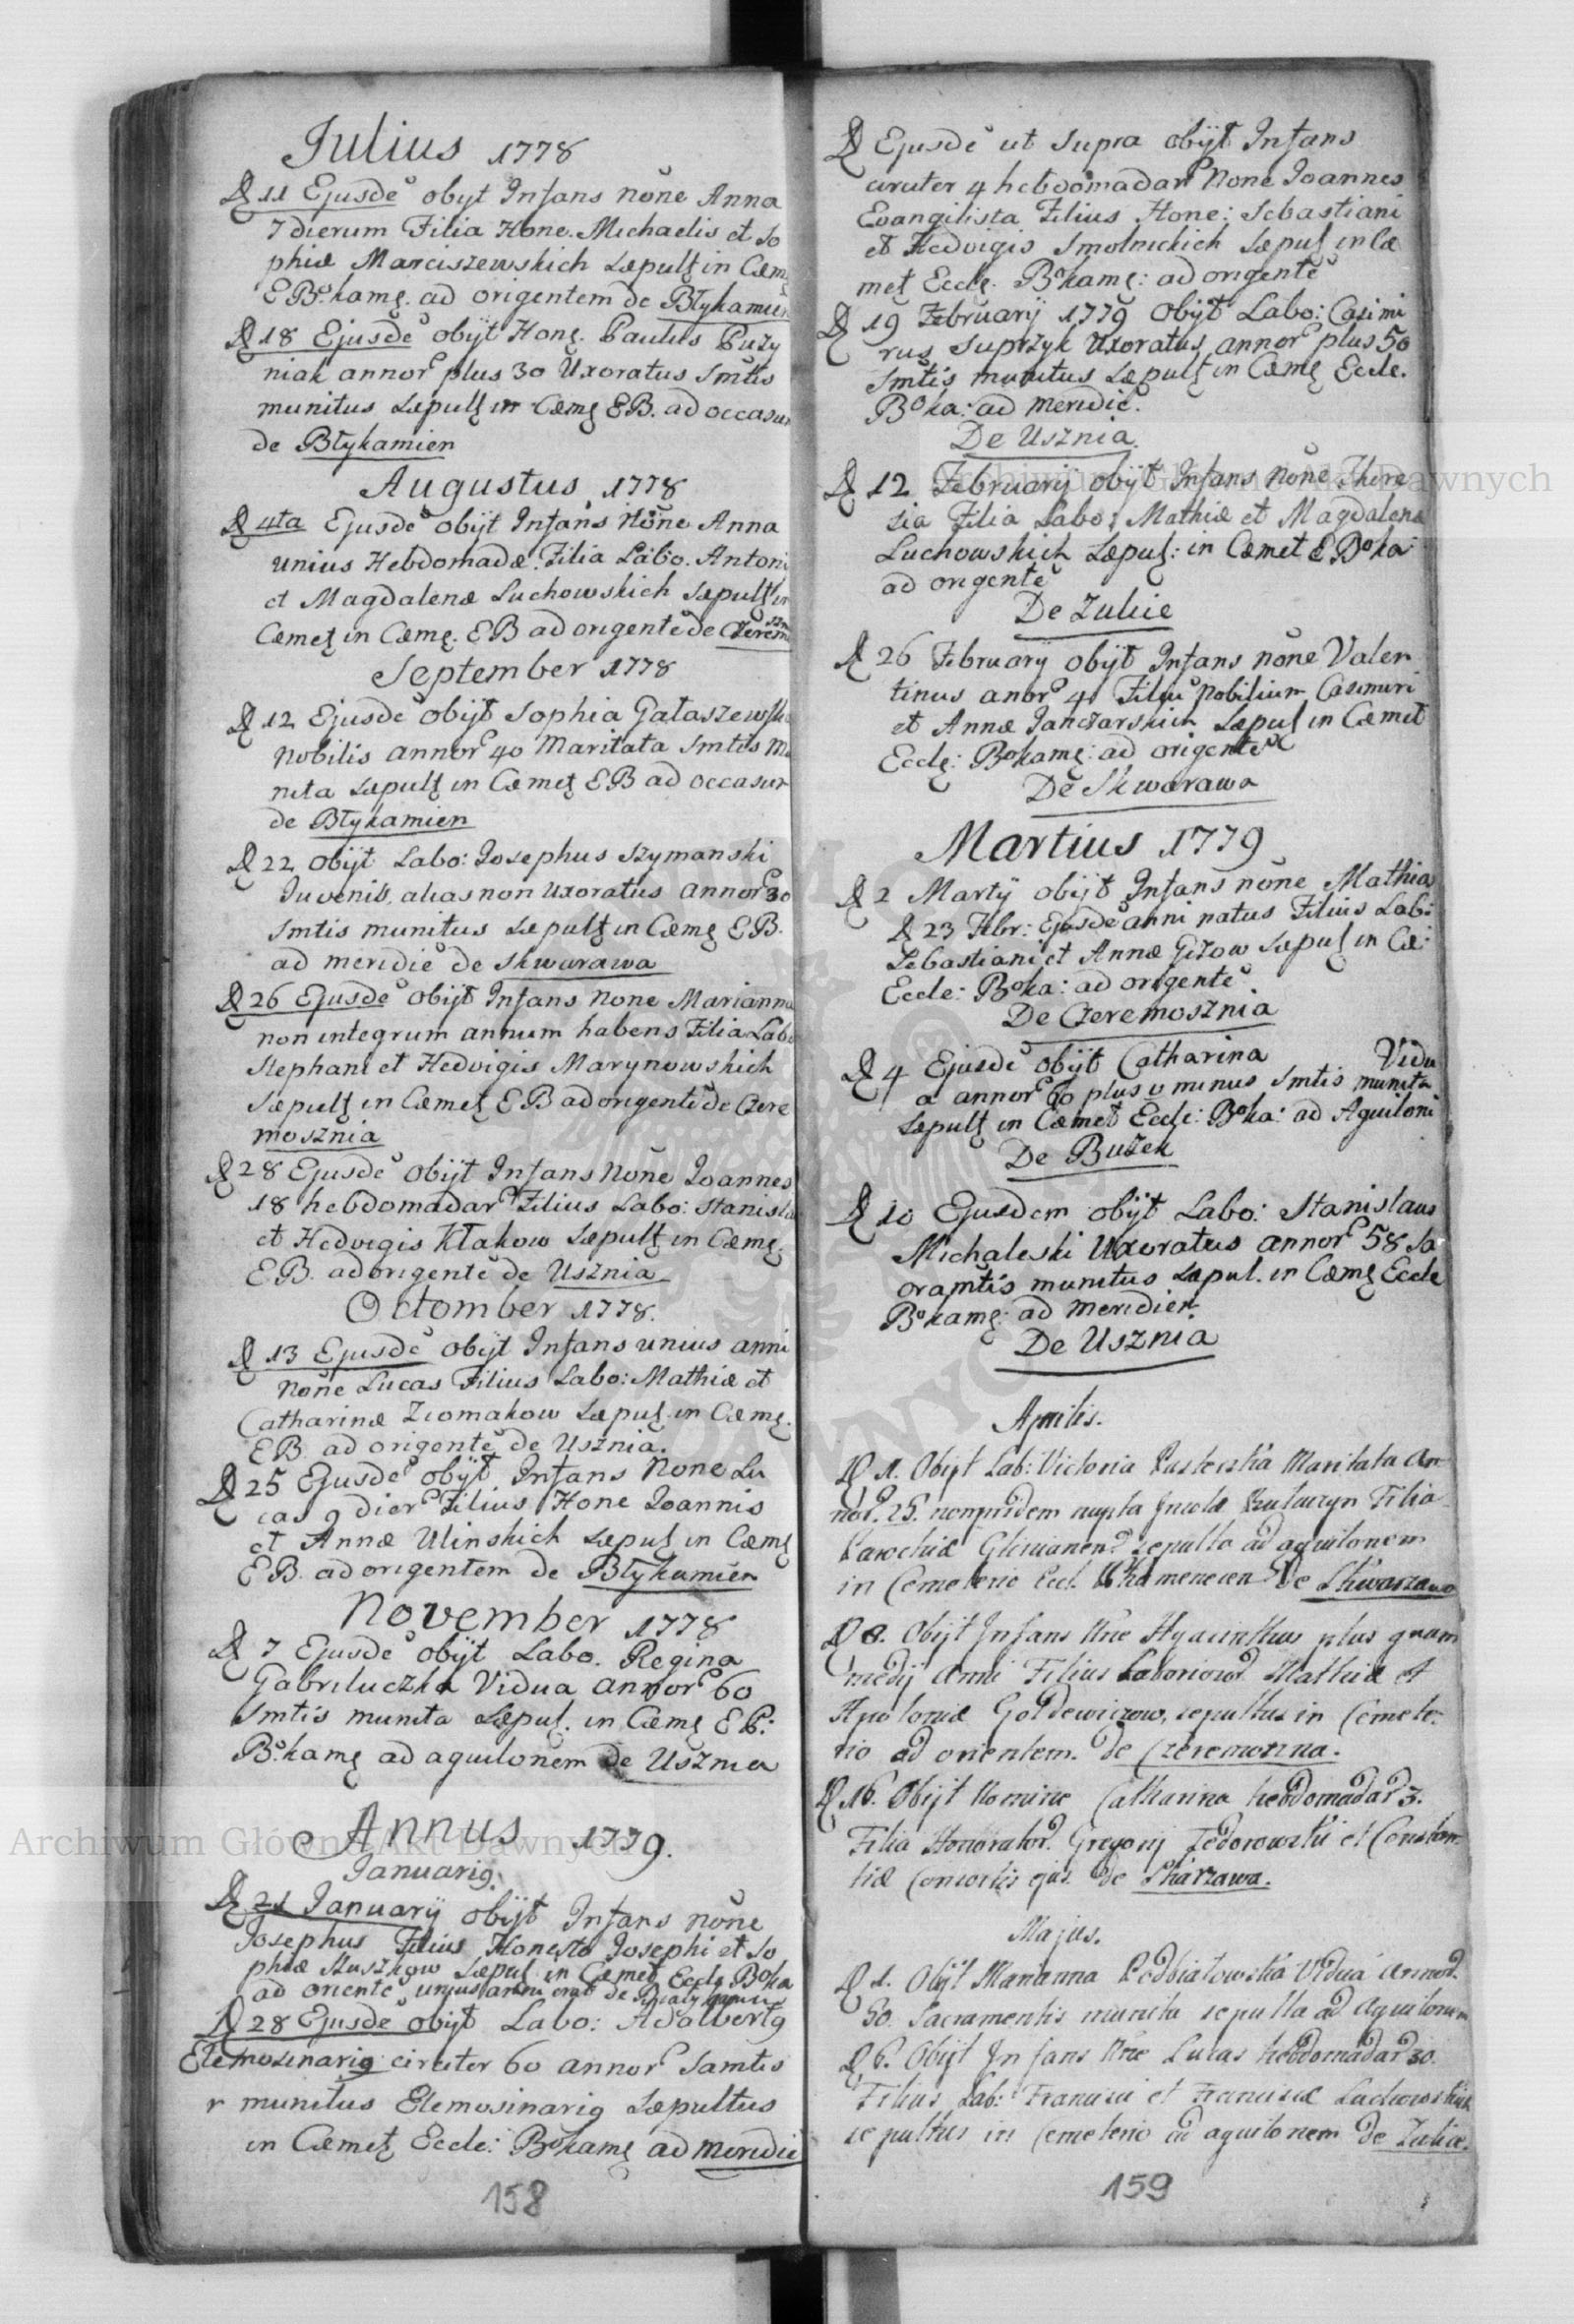 Julius 1778
D 11 Ejusdē obyt Infans nōne Anna
7 dierum Filia Hone. Michaelis et So
phiæ Marciszewskich Sæpult in Cæmę
E Bokamę. ad origentem de Błykamień
D 18 Ejusdē obijt Honę. Paulus Puzy
niak annor plus 30 Uxoratus Smtis
munitus Sæpult in Cæmę EB. ad occasum
de Błykamien
Augustus 1778
D 4ta Ejusdē obijt Infans Nōne Anna
unius Hebdomadæ. Filia Labo. Antoni
et Magdalenæ Luchowskich Sæpult in
Cæmet in Cæmę. EB ad origentē de Czerem
September 1778
D 12 Ejusdē obijt Sophia Gałaszewska
Nobilis annor 40 Maritata Smtis Mu
nita Sæpult in Cæmet EB ad occasum
de Błykamien
D 22 obijt Labo: Josephus Szymanski
Juvenis, alias non Uxoratus annor 30
Smtis munitus Sæpult in Cæmę EB.
ad meridiē de Skwarawa
D 26 Ejusdē obijt Infans None Marianna
non integrum annum habens Filia Labo
Stephani et Hedvigis Marynowskich
Sæpult in Cæmet EB ad origentē de Czere
mosznia
D 28 Ejusdē obijt Infans Nōne Joannes
18 hebdomadar Filius Labo: Stanisla
et Hedvigis Kłakow Sæpult in Cæmę.
EB. ad origentē de Usznia
Octomber 1778.
D 13 Ejusdē obijt Infans unius anni
Nōne Lucas Filius Labo: Mathiæ et
Catharinæ Ziomakow Sæpuł. in Cæmę.
EB. ad origentē de Usznia.
D 25 Ejusdē obijt Infans None Lu
cas 9 dier Filius Hone Joannis
et Annæ Ulinskich Sæpuł in Cæmę
EB. ad origentem de Błykamien
November 1778
D 7 Ejusdē obijt Labo. Regina
Gabriluczka Vidua annor 60
Smtis munita Sæpuł. in Cæmę E P:
Bokamę ad aquilonem de Usznia
Annus 1779.
Januariq.
D 21 January obijt Infans nōne
Josephus Filius Honesto Josephi et So
phiæ Skuszkow Sæpuł in Cæmet Eccle Boka
ad orientē unius anni erat de Białykamień
D 28 Ejusdē obijt Labo: Adalbertq
Elemosinariq circiter 60 annor Samtis
r munitus Elemosinariq Sæpultus
in Cæmet Eccle: Bokamę ad meridiē
158
D Ejusdē ut Supra obijt Infans
circiter 4 hebdomadar None Joannes
Evangilista Filius Hone: Sebastiani
et Hedvigis Smolnickich Sæpuł in Cæ
met Eccle. Bokamę: ad origentē
D 19 February 1779 obijt Labo: Casimi
rus Suprzyk Uxoratus annor plus 50
Smtis munitus Sæpult in Cæmę Eccle.
Boka: ad meridiē.
De Usznia.
D 12 February obijt Infans Nōne There
sia Filia Labo: Mathiæ et Magdalenæ
Luchowskich Sæpuł: in Cæmet E Boka
ad origentē
De Zulice
D 26 February obijt Infans nōne Valen
tinus anor 4. Filiu Nobilium Casimiri
et Annæ Janczarskich Sæpuł in Cæmet
Eccle: Bokamę: ad origentē
De Skwarawa
Martius 1779
D 2 Martÿ obijt Infans nōne Mathias
D 23 Febr: Ejusdē anni natus Filius Lab:
Sebastiani et Annæ Gizow Sæpuł in Cæ:
Eccle: Boka: ad origentē
De Czeremosznia
D 4 Ejusdē obijt Catharina Vidu
a annor 60 plus v minus Smtis munita
Sæpult in Cæmet Eccle: Boka: ad Aquiloni
De Buzek
D 10 Ejusdem obijt Labo: Stanislaus
Michaleski Uxoratus annor 58 Sa
cramtis munitus Sæpul. in Cæmę Eccle
Bokamę: ad meridiem.
De Usznia
Aprilis.
D 1. Obijt Lab: Victoria Maritata An-
nor. 25. nonpridem nupta Filia
Parochiæ sepulta ad aquilonem
in Cemeterio Eccl. De Skwarzawa
D 8. Obijt Infans Nne Hyacinthus plus quam
medij Anni Filius Laborior. Mathiæ et
Apoloniæ Gołdewiczow, sepultus in Cemete-
rio ad orientem. de Czeremoszna.
D 16. Obijt Nomine Catharina hebdomadar 3.
Filia Honorator. Gregorij Fedorowski et Constan-
tiæ Consortis ejus de Skarzawa.
Majus.
D 1. Obijt Marianna Podbiałowska Vidua annor.
50. Sacramentis munita sepulta ad Aquilonem
D 6. Obijt Infans Nne Lucas hebdomadar 30.
Filius Lab: Francisci et Franciscæ Luchowskich
sepultus in Cemeterio ad aquilonem de Zulice.
159
Archiwum Główne Akt Dawnych
Archiwum Główne Akt Dawnych